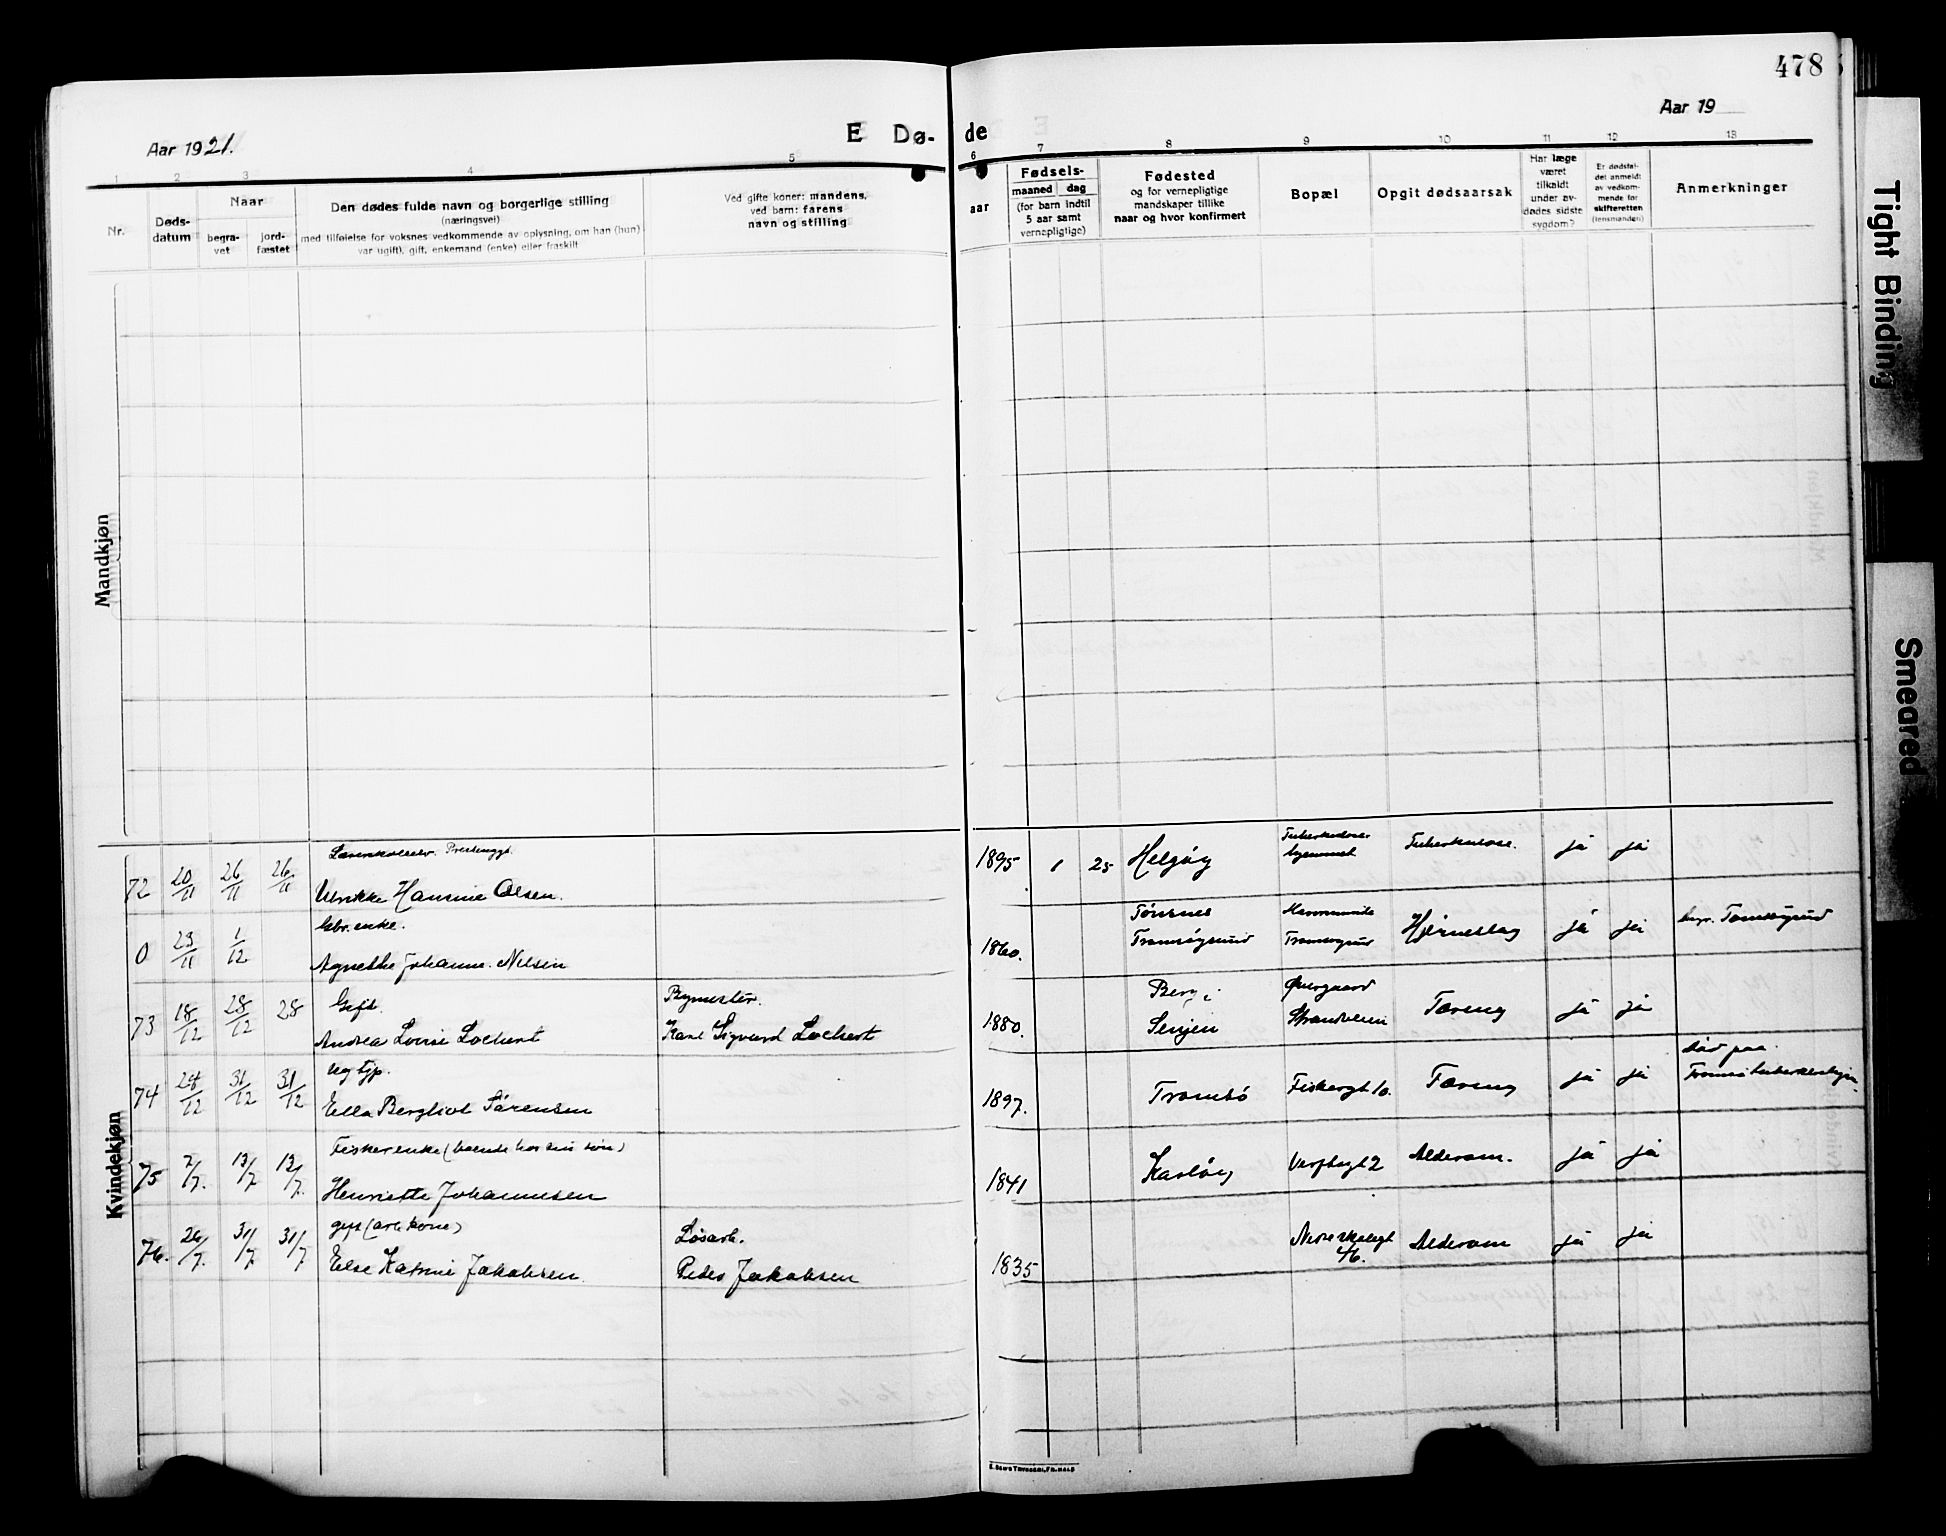 478
Aar 1921.
E Dø-
de
Aar 19
1 2 3 4 5 6 7 8 9 10 11 12 13
Nr.
Døds-
datum
Naar
begra-
vet
jord-
fæstet
Den dødes fulde navn og borgerlige stilling
(næringsvei)
med tilføielse for voksnes vedkommende av oplysning, om han (hun)
var ugift, gift, enkemand (enke) eller fraskilt
Ved gifte koner: mandens,
ved barn: farens
navn og stilling
aar
Fødsels-
maaned dag
(for barn indtil
5 aar samt
vernepligtige)
Fødested
og for vernepligtige
mandskaper tillike
naar og hvor konfirmert
Bopæl
Opgit dødsaarsak
Har læge
været
tilkaldt
under av-
dødes sidste
sygdom?
Er dødsfal-
det anmeldt
av vedkom-
mende for
skifteretten
(lensmanden)
Anmerkninger
Mandkjøn
Kvindekjøn
72 20/11 26/11 26/11
Ulrikke Hansine Olsen.
1895 1 25 Helgøy Tuberkulose. ja ja
0 29/11 1/12
enke.
Agnethe Johanne Nilsen
1860. Tönsnes
Tromsøysund
Tromsøysund Hjerneslag ja ja Tromsøysund
73 18/12 28/12 28
Gift.
Andrea Lovise Lockert
Karl Sigvard Lockert
1880. Berg i
Senjen
Øvergaard
Strandveien Tæring ja ja
74 24/12 31/12 31/12
Ella Bergliot Sørensen
1897. Tromsö Fiskergt 10. Tæring ja ja død paa
75 7/7. 13/7 13/7.
Fiskerenke (boende hos sin søn)
Henriette Johannesen
1841 Karlsöy Verftsgt 2 Alderdom. ja ja
76. 26/7. 31/7 31/7
gift (arb. kone)
Else Katrine Jakobsen
Løsarb.
Peder Jakobsen
1835 Nedre skolegt
46. Alderdom ja ja
Tight Binding
Smeared